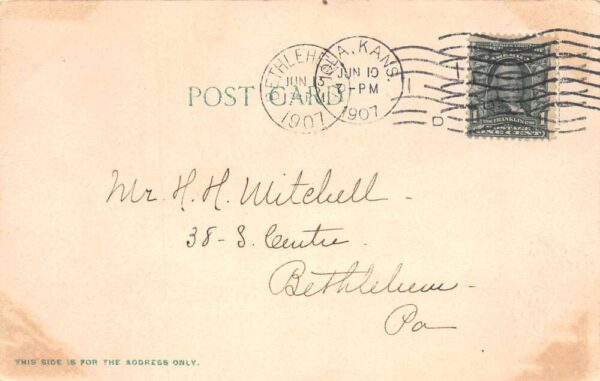 BETHLEHEM
JUN
1907
IOLA, KANS.
JUN 10
-PM
1907
D
POST CARD
FRANKLIN
POSTAGE
ONE CENT
Mr. H. H. Mitchell
38-S. Centre
Bethlehem
Pa
THIS SIDE IS FOR THE ADDRESS ONLY.